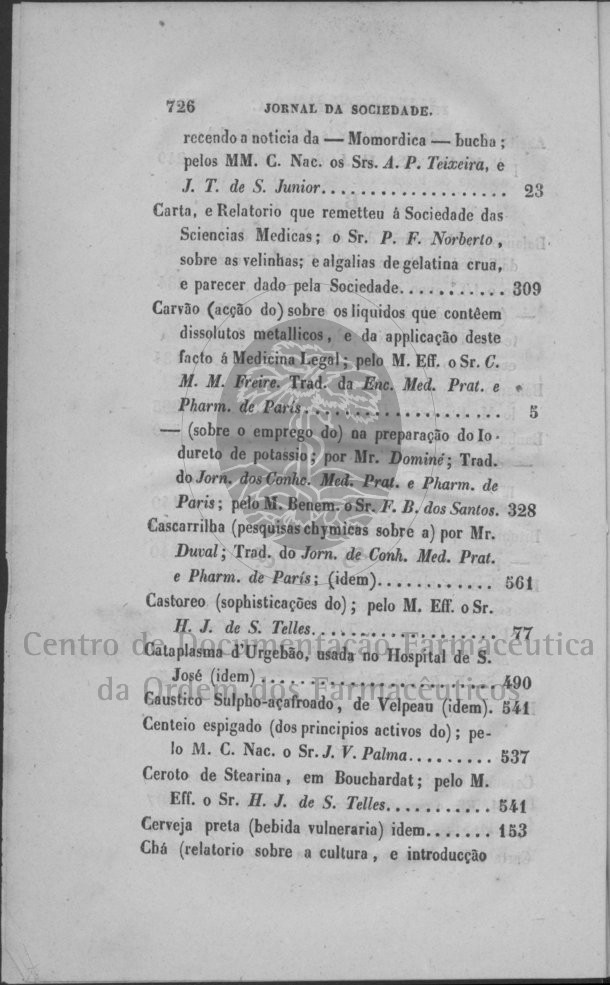 726 JORNAL DA SOCIEDADE.
recendo a noticia da — Momordica — bucha ;
pelos MM. C. Nac. os Srs. A. P. Teixeira, e
J. T. de S. Junior................... 23
Carta, e Relatorio que remetteu á Sociedade das
Sciencias Medicas; o Sr. P. F. Norberto ,
sobre as velinhas; e algalias de gelatina crua,
e parecer dado pela Sociedade........... 309
Carvão (acção do) sobre os liquidos que contêem
dissolutos metallicos , e da applicação deste
facto á Medicina Legal ; pelo M. Eff. o Sr. C.
M. M. Freire. Trad. da Enc. Med. Prat. e
Pharm. de Paris..................... 5
— (sobre o emprego do) na preparação do Io-
dureto de potassio ; por Mr. Dominé ; Trad.
do Jorn. dos Conhc. Med. Prat. e Pharm. de
Paris ; pelo M. Benem. o Sr. F. B. dos Santos. 328
Cascarrilha (pesquisas chymicas sobre a) por Mr.
Duval ; Trad. do Jorn. de Conh. Med. Prat.
e Pharm. de Paris ; (idem)............ 561
Castoreo (sophisticações do) ; pelo M. Eff. o Sr.
H. J. de S. Telles................... 77
Centro de Documentação Farmacêutica
Cataplasma d'Urgebão, usada no Hospital de S.
José (idem) ........................ 490
da Ordem dos Farmacêuticos
Caustico Sulpho-açafroado , de Velpeau (idem). 541
Centeio espigado (dos principios activos do) ; pe-
lo M. C. Nac. o Sr. J. V. Palma......... 537
Ceroto de Stearina , em Bouchardat ; pelo M.
Eff. o Sr. H. J. de S. Telles........... 541
Cerveja preta (bebida vulneraria) idem....... 153
Chá (relatorio sobre a cultura , e introducção